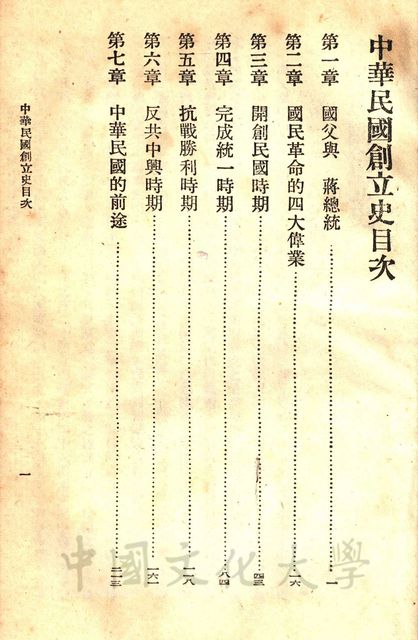 中華民國創立史目次
第一章　國父與　蔣總統……一
第二章　國民革命的四大偉業……一六
第三章　開創民國時期……四三
第四章　完成統一時期……八四
第五章　抗戰勝利時期……一一八
第六章　反共中興時期……一六一
第七章　中華民國的前途……二一三
中華民國創立史目次
一
中國文化大學